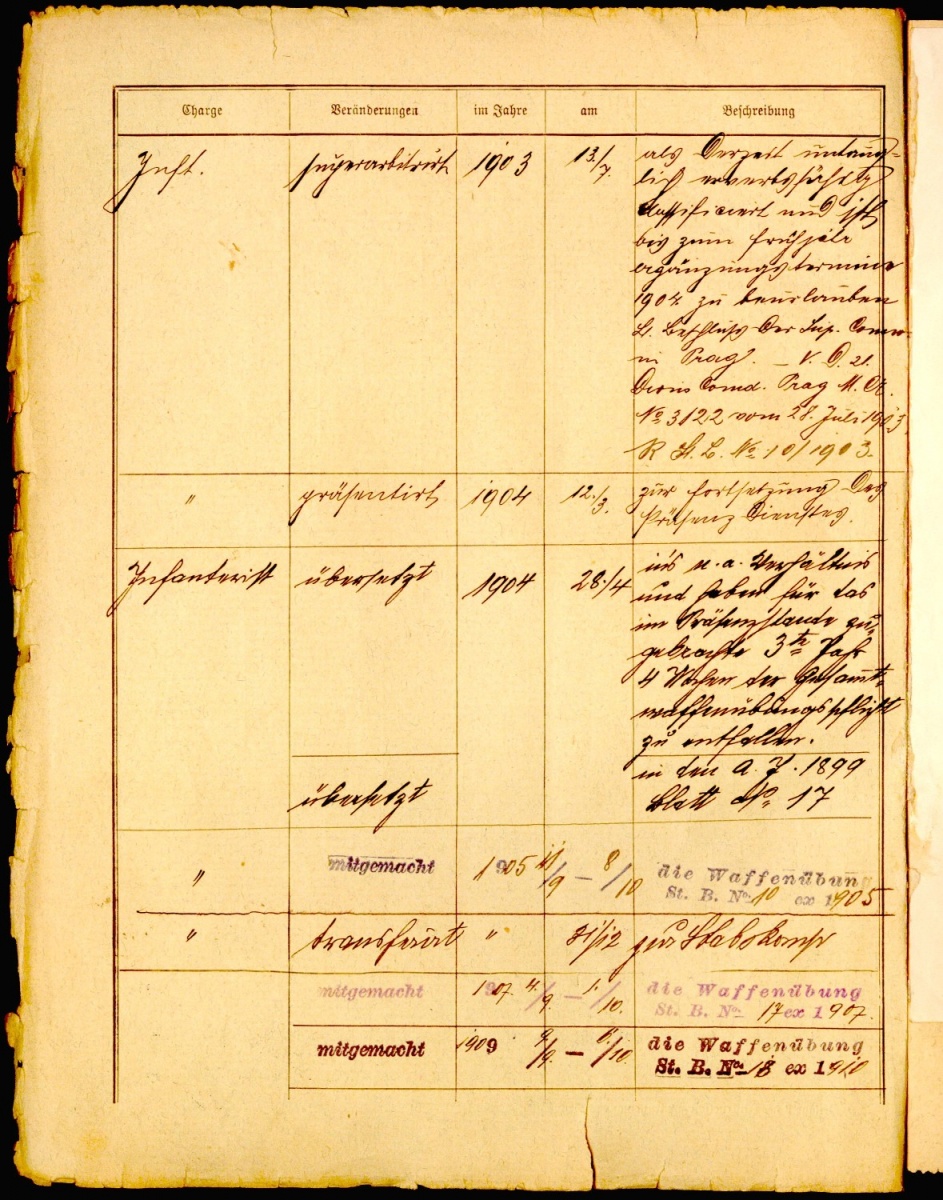 Charge Veränderungen im Jahre am Beschreibung
Inft. superarbitrirt 1903 13./7. als derzeit untaug-
lich erwerbsfähig
classificiert und ist
bis zum Frühjahr
ergänzungstermine
1904 zu beurlauben
lt. Beschluß der Sup. Comon
in Prag. – V. d. 21.
Divis Comd. Prag M. A.
No 3122 vom 28. Juli 1903
R. St. B. No 10/1903.
" präsentirt 1904 12./3. zur Fortsetzung des
Präsenz Dienstes.
Infanterist übersetzt 1904 28./4 ins n. a. Verhältnis
und haben für das
im Präsenzstande zu-
gebrachte 3te Jahr
4 Wochen der Gesammt-
waffenübungspflicht
zu entfallen.
übersetzt in den A. J. 1899
Blatt No 17
" mitgemacht 1905 11/9 – 8/10 die Waffenübung
St. B. No 10 ex 1905
" transferirt " 31/12 zur Stabskomp
mitgemacht 1907. 4./9. – 1./10. die Waffenübung
St. B. No 17 ex 1907.
mitgemacht 1909 /9. – 6./10. die Waffenübung
St. B. No 18 ex 1910